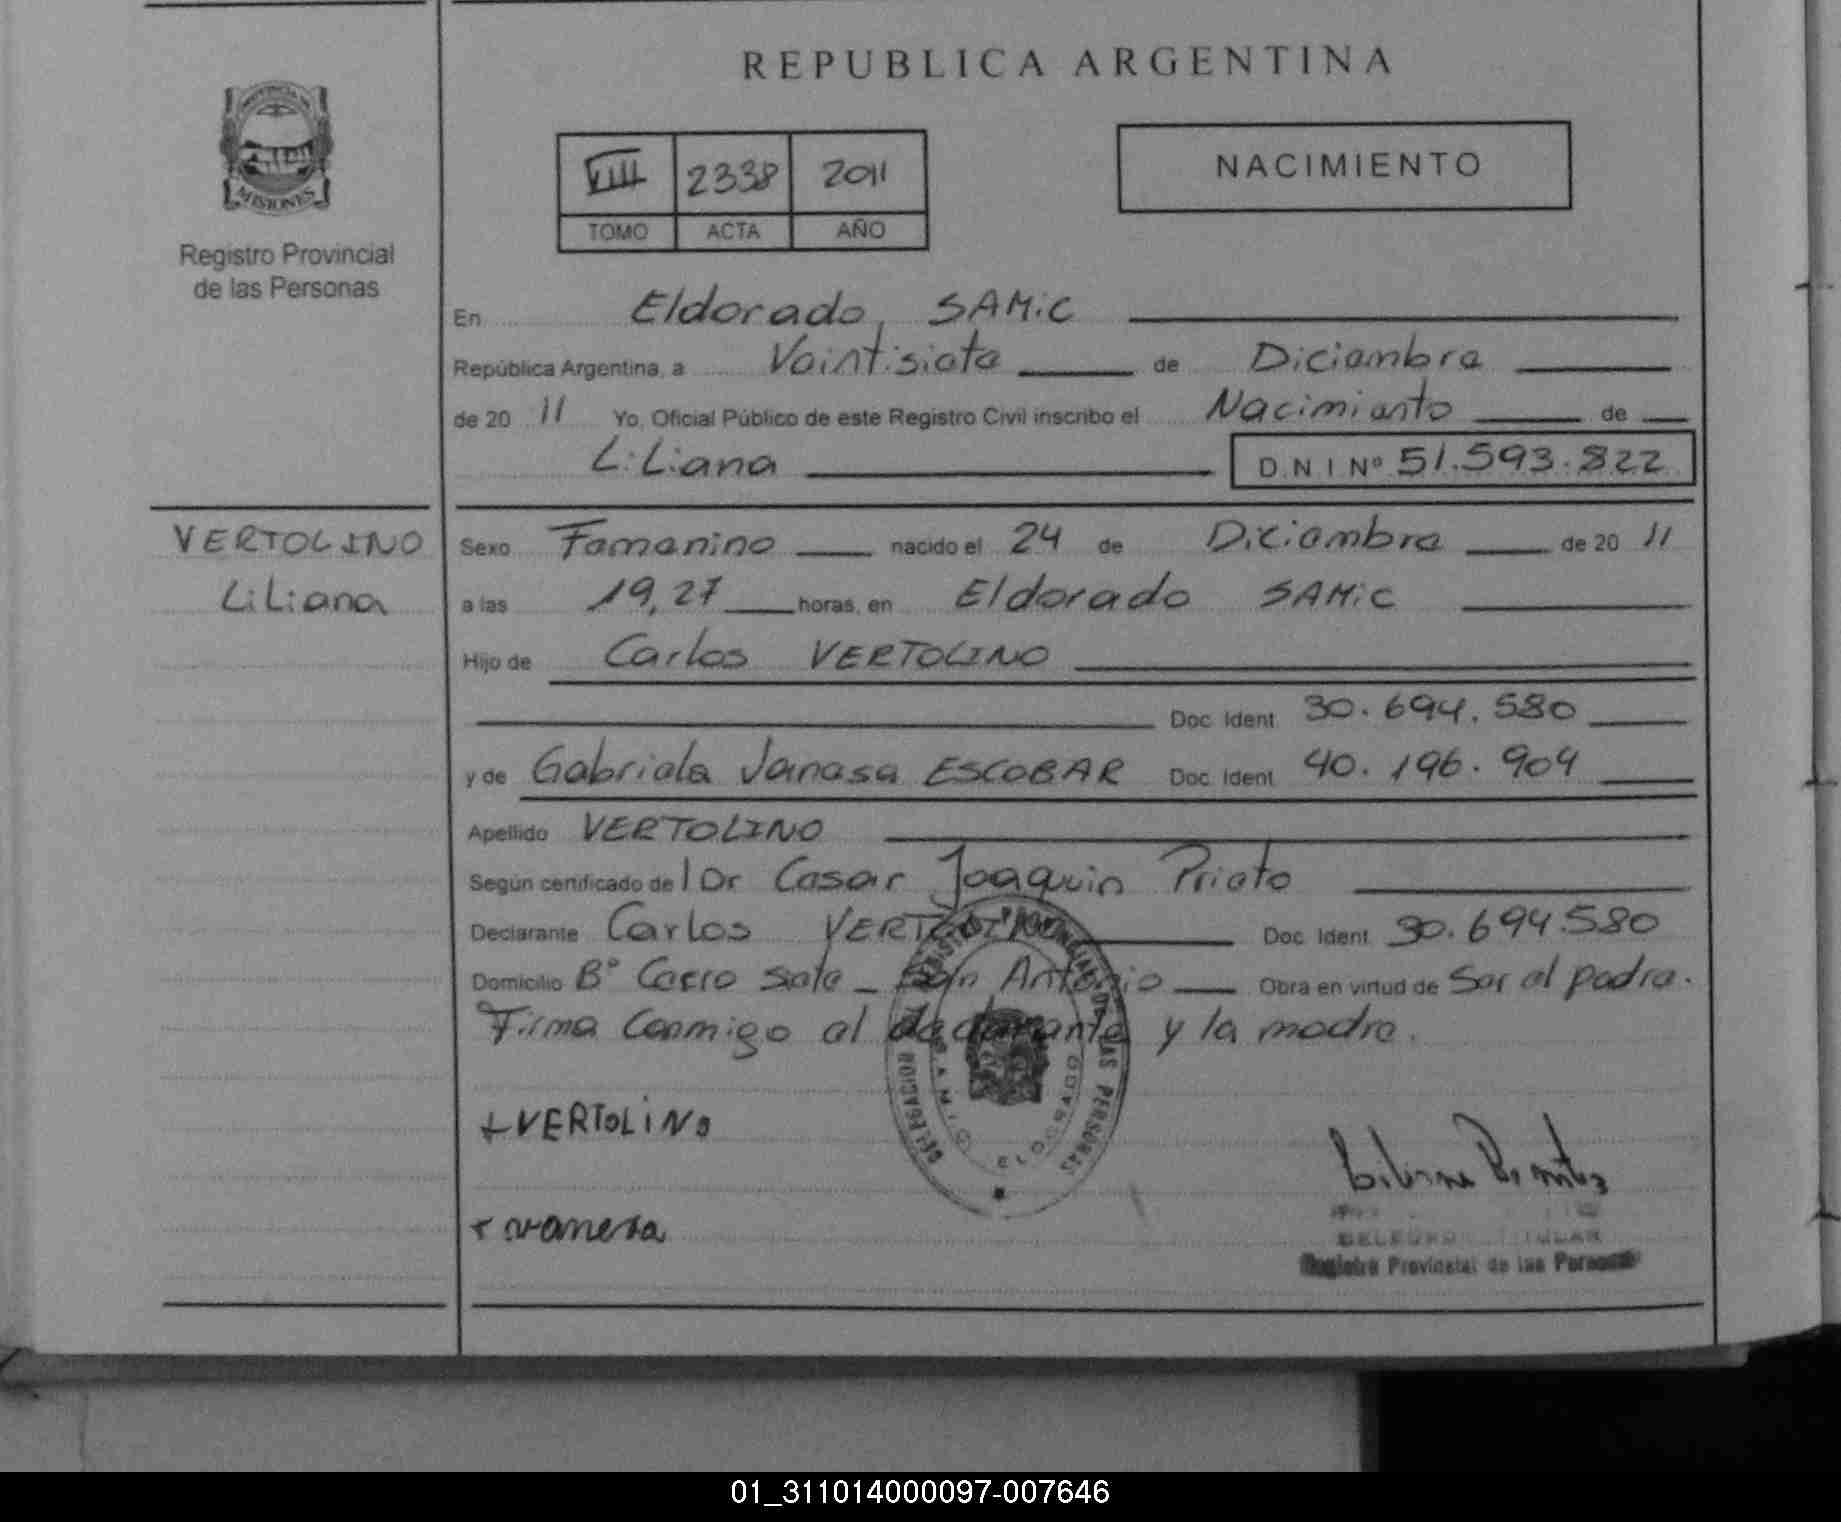 REPUBLICA ARGENTINA
PROVINCIA DE
MISIONES
Registro Provincial
de las Personas
VIII 2338 2011
TOMO ACTA AÑO
NACIMIENTO
En Eldorado, SAMiC
República Argentina, a Veintisiete de Diciembre
de 20 11 Yo, Oficial Público de este Registro Civil inscribo el Nacimiento de
Liliana D.N.I Nº 51.593.822
VERTOLINO
Liliana
Sexo Femenino nacido el 24 de Diciembre de 20 11
a las 19,27 horas, en Eldorado SAMiC
Hijo de Carlos VERTOLINO
Doc. Ident. 30.694.580
y de Gabriela Vanesa ESCOBAR Doc. Ident. 40.196.904
Apellido VERTOLINO
Según certificado del Dr Cesar Joaquin Prieto
Declarante Carlos VERTOLINO Doc. Ident. 30.694.580
Domicilio Bº Cerro Siete - San Antonio Obra en virtud de Ser el padre.
Firma Conmigo el declarante y la madre.
REGISTRO PROVINCIAL DE LAS PERSONAS
DELEGACION
S.A.M.I.C.
ELDORADO
+ VERTOLINO
+ vanesa
TITULAR
Registro Provincial de las Personas
01_311014000097-007646